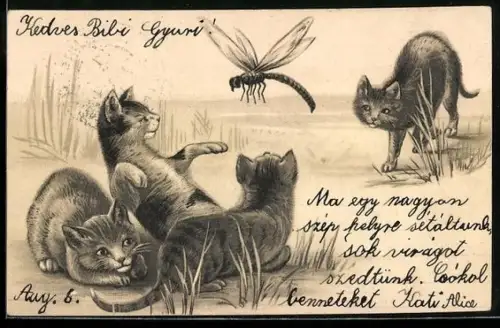 Kedves Bibi Gyuri!
Ma egy nagyon
szép helyre sétáltunk,
sok virágot
szedtünk. Csókol
benneteket Kati Alice
Aug. 6.